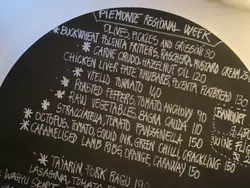 PIEMONTE REGIONAL WEEK
OLIVES, PICKLES AND GRISSINI 80
* BUCKWHEAT POLENTA FRITTERS, RASCHERA, MUSTARD CREAM
* CARNE CRUDO, HAZELNUT OIL 120
CHICKEN LIVER PATE, RHUBARB, POLENTA FLATBREAD
* VITELLO TONNATO 140
* ROASTED PEPPERS, TOMATO, ANCHOVY 90
* RAW VEGETABLES, BAGNA CAUDA 110
STRACCIATELLA, TOMATO PANZANELLA 150
* OCTOPUS, TOMATO, SQUID INK, GREEN CHILLI, CRACKLING 150
* CARAMELISED LAMB RIBS, ORANGE, CARAWAY 150
* TAJARIN PORK RAGU 190
LASAGNA, TOMATO
WAGYU SKIRT